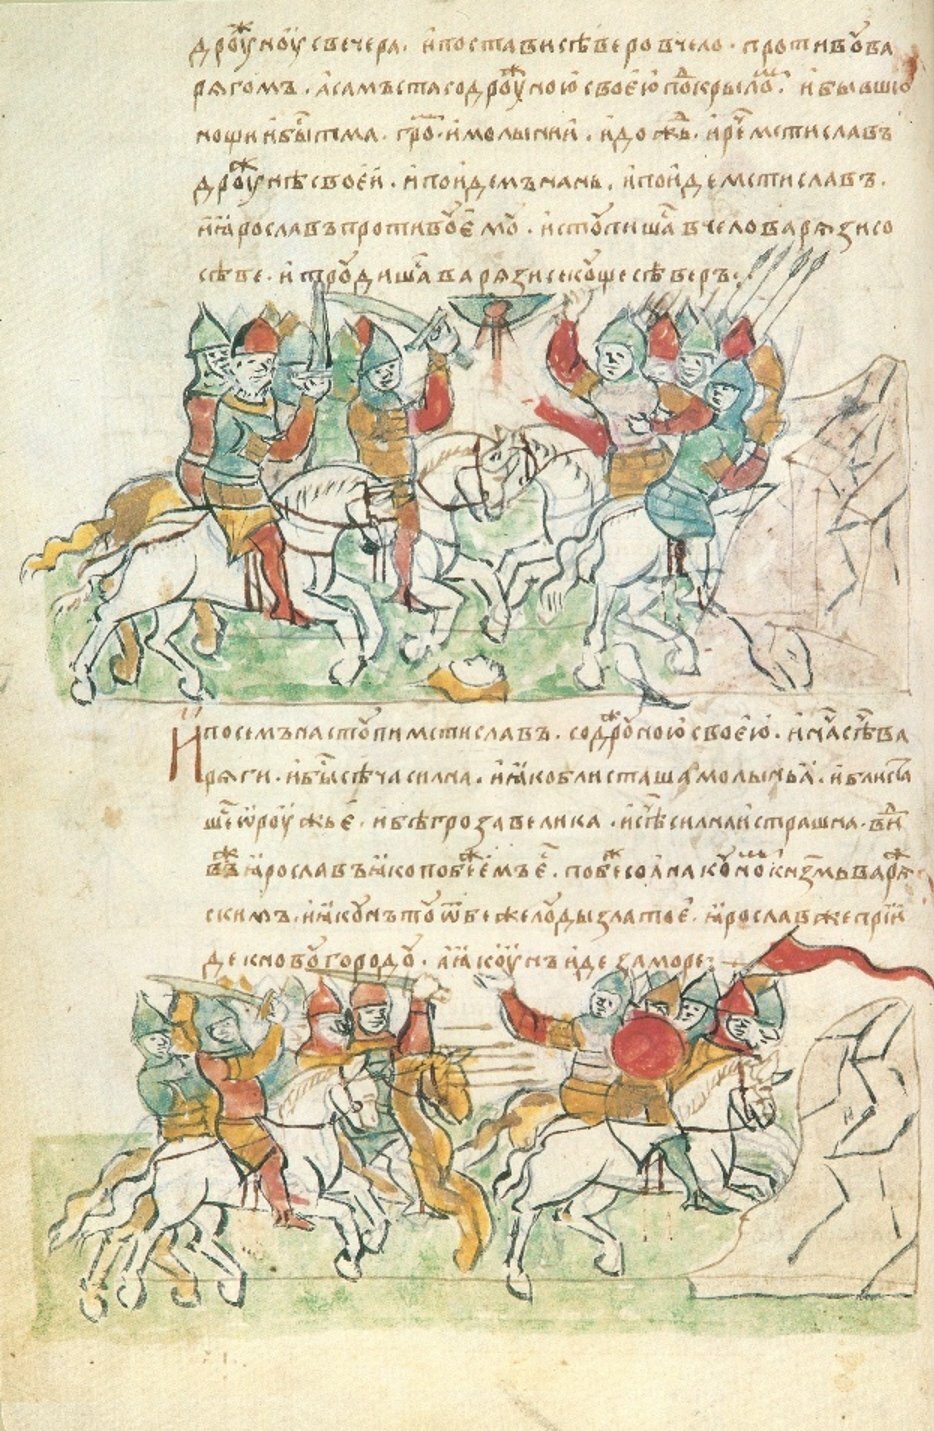 дроужиноу свечера. и постави сѣверо в чело. противоу ва
рягомъ. а самъ ста со дроужиною своею по крилома. и бывши
нощи и бысть тма. громъ. и молънии. и дождь. и рече мстиславъ
дроужинѣ своеи. и поидемъ на нь. и поиде мстиславъ.
и ꙗрославъ противоу емоу. и стоупишася в чело варязи со
сѣве. и троудишася варязи секоуще сѣверъ.
И посемъ настоупи мстиславъ. со дроужиною своею. и нача сѣщи ва
ряги. и бысть сѣча силна. и ꙗко блисташа молънья. и блиста
шеся ѡроужье. и бѣ гроза велика. и сѣча силна и страшна. ви
дѣвъ же ꙗрославъ ꙗко побѣжаемъ есть. побѣже со ꙗкоуномъ кнѧземъ варяж
скимъ. и ꙗкоунъ тоу ѿбеже лоуды златое. ꙗрослав же прии
де к новоугородоу. а ꙗкоунъ иде за море.